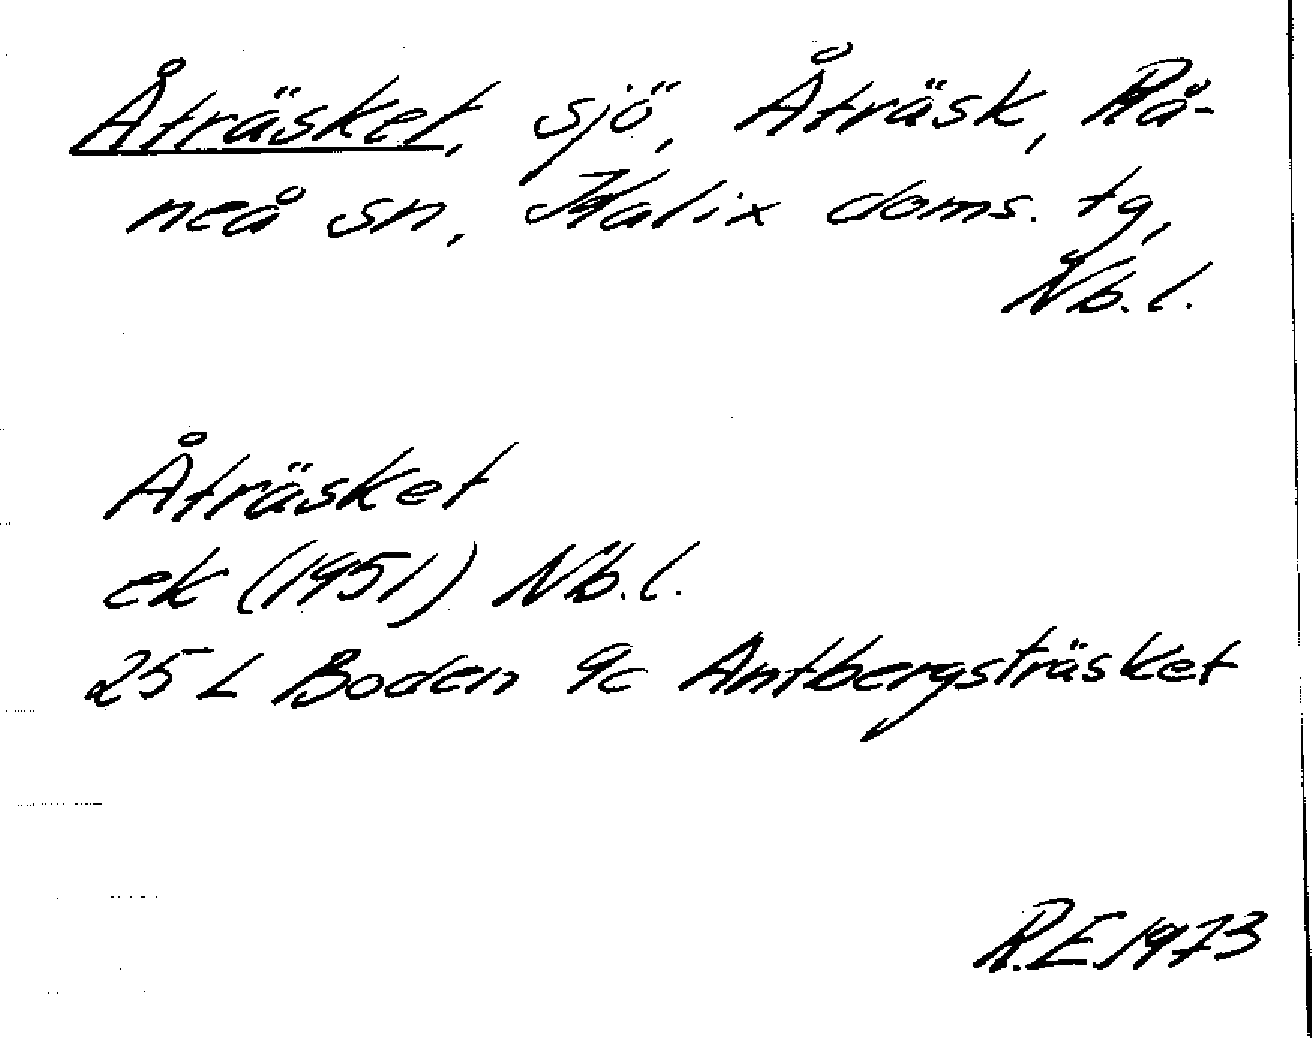 Åträsket, sjö, Åträsk, Rå-
neå sn, Kalix doms. tg,
Nb. l.
Åträsket
ek (1951) Nb. l.
25 L Boden 9c Antbergsträsket
R.E. 1973